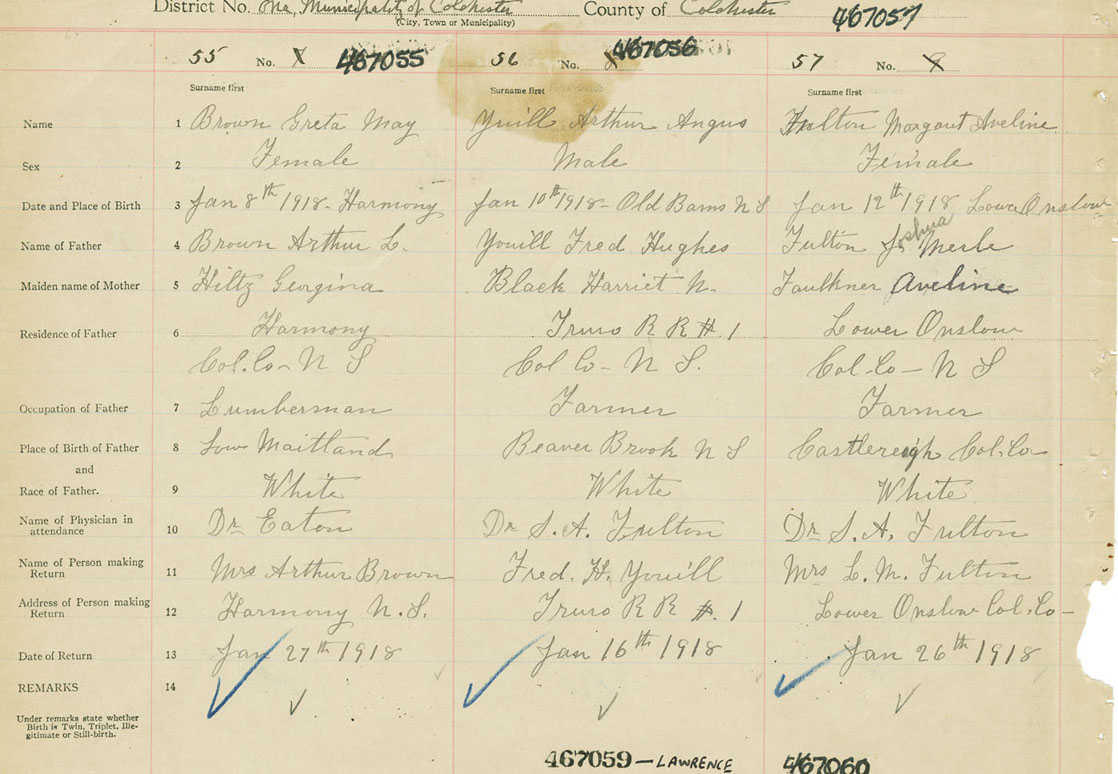 District No. One, Municipality of Colchester County of Colchester 467057
(City, Town or Municipality)
55 No. 467055 56 No. 467056 57 No.
Surname first Surname first Surname first
Name 1 Brown Greta May Yuill Arthur Angus Fulton Margaret Aveline
Sex 2 Female Male Female
Date and Place of Birth 3 Jan 8th 1918- Harmony Jan 10th 1918- Old Barns N S Jan 12th 1918 Lower Onslow
Name of Father 4 Brown Arthur L. Youill Fred Hughes Fulton Joshua Merle
Maiden name of Mother 5 Hiltz Georgina Black Harriet N. Faulkner Aveline
Residence of Father 6 Harmony Truro R R #.1 Lower Onslow
Col. Co- N S Col Co- N S. Col. Co- N S
Occupation of Father 7 Lumberman Farmer Farmer
Place of Birth of Father 8 Low Maitland Beaver Brook N S Castlereigh Col. Co-
and
Race of Father. 9 White White White
Name of Physician in
attendance 10 Dr Eaton Dr S. A. Fulton Dr S. A. Fulton
Name of Person making
Return 11 Mrs Arthur Brown Fred. H. Youill Mrs L. M. Fulton
Address of Person making
Return 12 Harmony N. S. Truro R R #.1 Lower Onslow Col. Co-
Date of Return 13 Jan 27th 1918 Jan 16th 1918 Jan 26th 1918
REMARKS 14
Under remarks state whether
Birth is Twin, Triplet, Ille-
gitimate or Still-birth.
467059 - LAWRENCE 467060